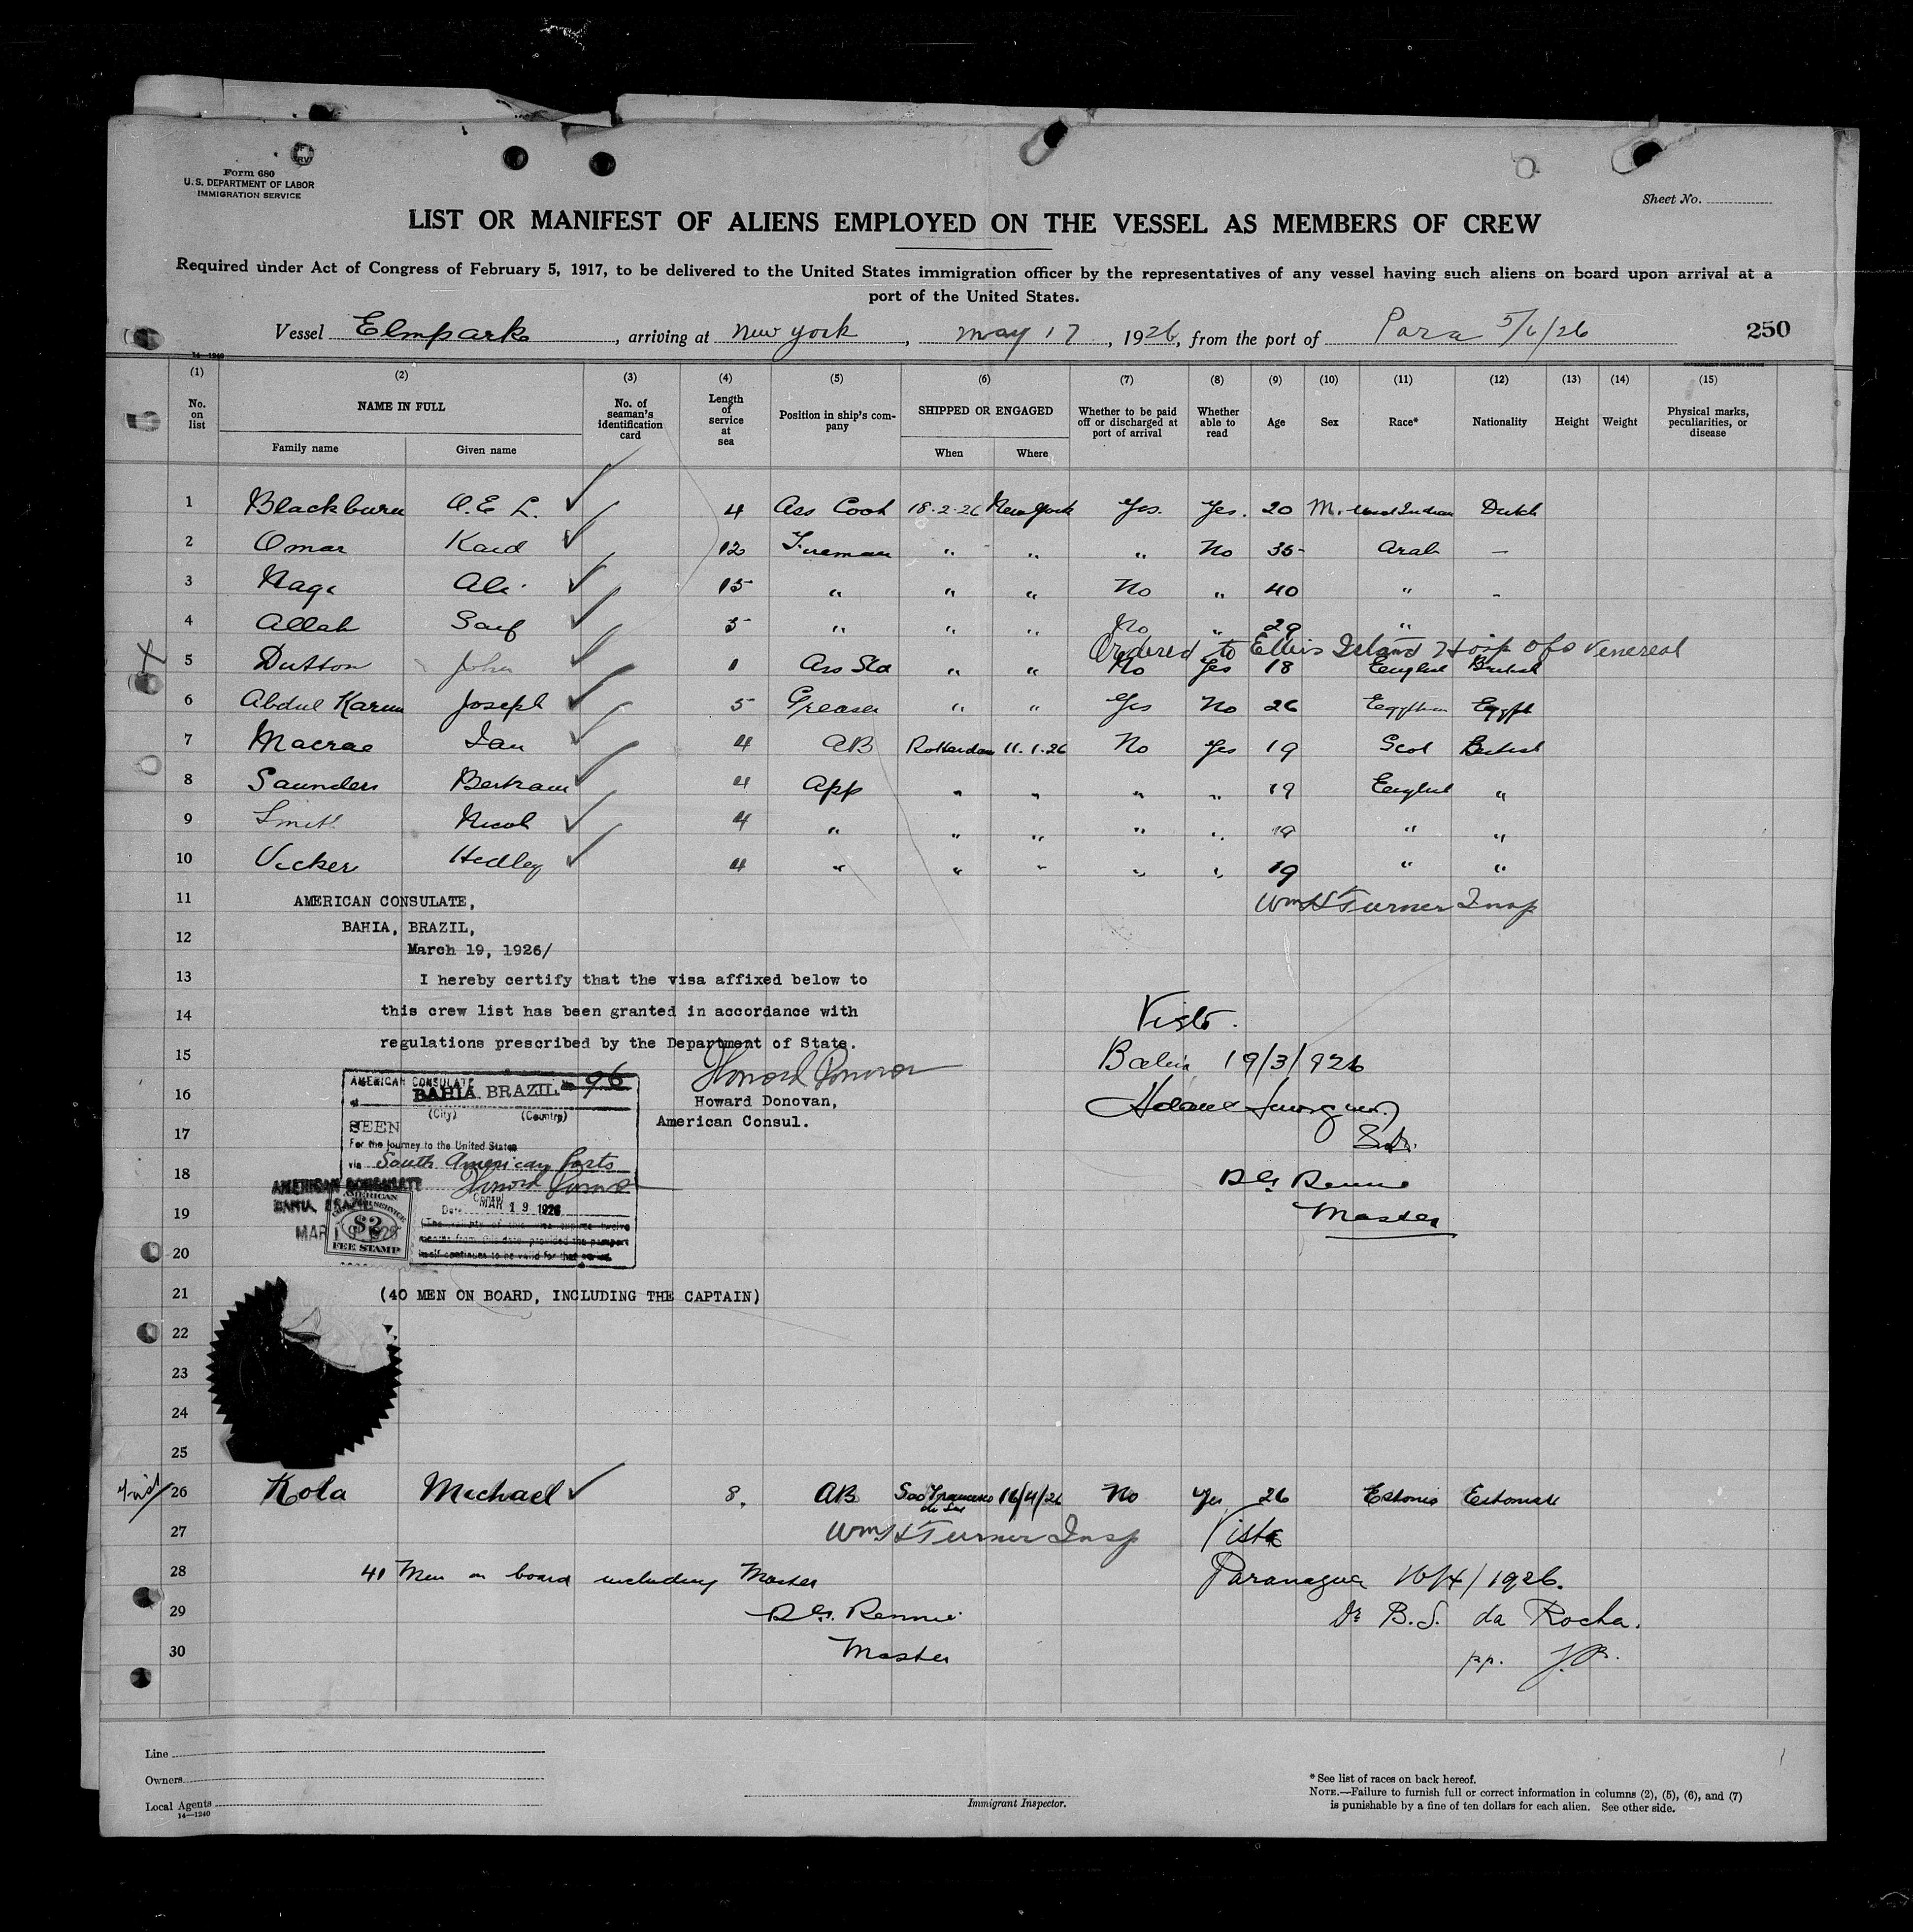 Form 680
U. S. DEPARTMENT OF LABOR
IMMIGRATION SERVICE
Sheet No.
LIST OR MANIFEST OF ALIENS EMPLOYED ON THE VESSEL AS MEMBERS OF CREW
Required under Act of Congress of February 5, 1917, to be delivered to the United States immigration officer by the representatives of any vessel having such aliens on board upon arrival at a
port of the United States.
Vessel Elmpark, arriving at New York, May 17, 1926, from the port of Para 5/6/26 250
14—1240
(1) (2) (3) (4) (5) (6) (7) (8) (9) (10) (11) (12) (13) (14) (15)
No. on list NAME IN FULL Family name Given name No. of seaman's identification card Length of service at sea Position in ship's company SHIPPED OR ENGAGED When Where Whether to be paid off or discharged at port of arrival Whether able to read Age Sex Race* Nationality Height Weight Physical marks, peculiarities, or disease
1 Blackburn A. E L. 4 Ass Cook 18-2-26 New York Yes. Yes. 20 M. West Indian Dutch
2 Omar Kaid 12 Fireman " " " No 35 Arab —
3 Nagi Ali 15 " " " No " 40 " -
4 Allah Saif 5 " " " No " 29 "
Ordered to Ellis Island Hosp o/c Venereal
5 Dutton John 1 Ass Std " " No Yes 18 English British
6 Abdul Karim Joseph 5 Greaser " " Yes No 26 Egyptian Egypt
7 Macrae Ian 4 AB Rotterdam 11.1.26 No Yes 19 Scot British
8 Saunders Bertram 4 App " " " " 19 English "
9 Smith Nicol 4 " " " " " 19 " "
10 Vicker Hedley 4 " " " " " 19 " "
11 Wm H Turner Insp
AMERICAN CONSULATE,
12 BAHIA, BRAZIL,
March 19, 1926/
13 I hereby certify that the visa affixed below to
14 this crew list has been granted in accordance with
regulations prescribed by the Department of State.
15 Howard Donovan
16 Howard Donovan,
17 American Consul.
Visto.
Bahia 19/3/926
AMERICAN CONSULATE
at BAHIA BRAZIL No 96
(City) (Country)
SEEN
For the journey to the United States
via South American Ports
Howard Donovan
Consul
Date MAR 19 1926
(The validity of this visa expires twelve
months from this date provided the passport
itself continues to be valid for that period.
AMERICAN CONSULATE
BAHIA, BRAZIL
MAR 19 1926
AMERICAN
CONSULAR SERVICE
$2
FEE STAMP
18 Rennie
19 Master
20
21 (40 MEN ON BOARD, INCLUDING THE CAPTAIN)
22
23
24
25
26 Kola Michael 8. AB Sao Francisco do Sul 16/4/26 No Yes 26 Estonia Estonian
27 Wm H Turner Insp Visto
28 41 Men on board including Master Paranagua 16/4/1926.
29 Rennie Dr B. S. da Rocha.
30 Master pp.
Line
Owners
Local Agents
14—1240
Immigrant Inspector.
* See list of races on back hereof.
NOTE.—Failure to furnish full or correct information in columns (2), (5), (6), and (7)
is punishable by a fine of ten dollars for each alien. See other side.